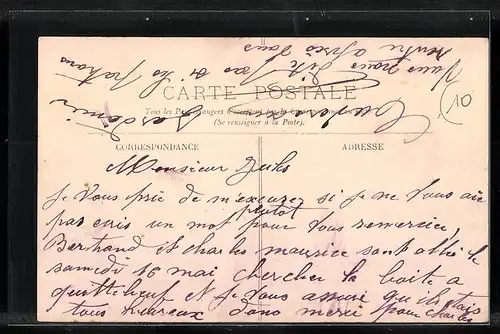 CARTE POSTALE
Tous les Pays étrangers n'acceptent pas la correspondance au recto
(Se renseigner à la Poste).
CORRESPONDANCE
ADRESSE
10
Monsieur Jules
Je vous prie de m'excuser si je ne vous aie
pas écris un mot plutôt pour vous remercier,
Bertrand et Charles maurice sont allés le
samedi 16 mai chercher la boite a
quitteboeuf et je vous assure qu'ils étais
tous heureux donc merci pour Charles
vous nous dite pas si la
rentre après vous